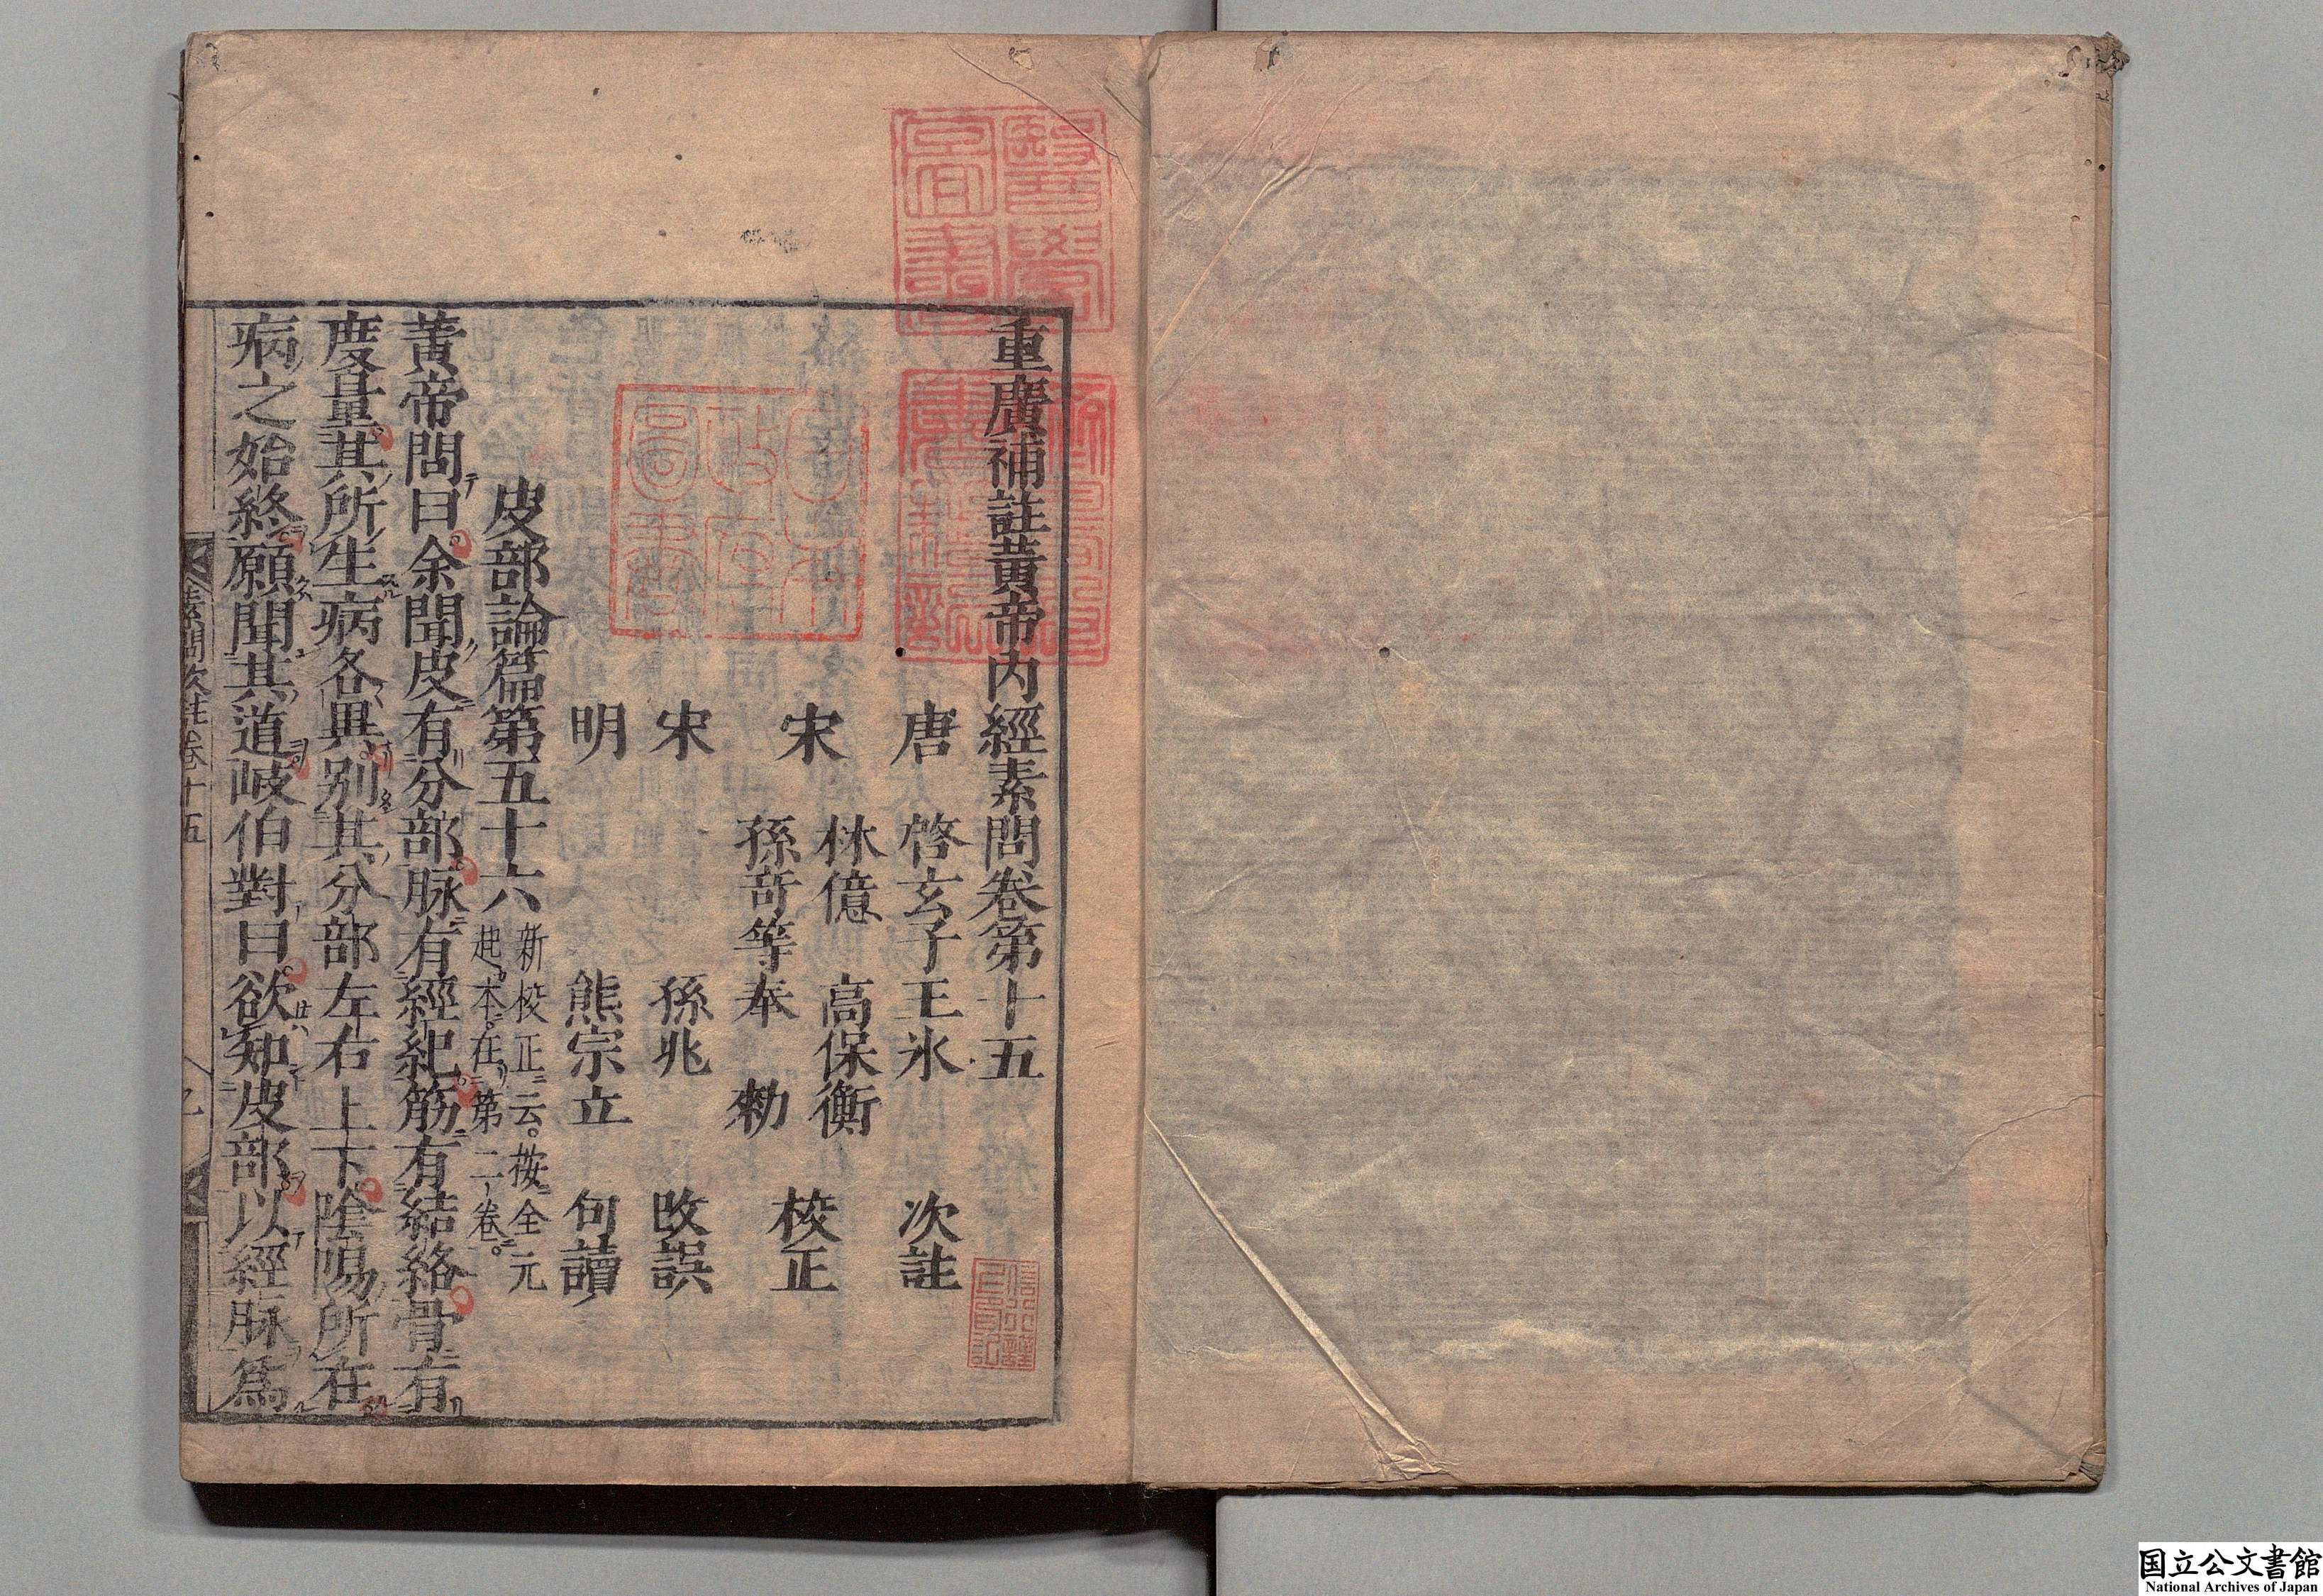 重廣補註黃帝内經素問卷第十五
唐 啓玄子王氷 次註
宋 林億 高保衡
孫奇等奉 勑 校正
宋 孫兆 改誤
明 熊宗立 句讀
皮部論篇第五十六
新校正云。按全元
起本。在第二卷。
黃帝問曰余聞皮有分部脉有經紀筋有結絡骨有
度量其所生病各異别其分部左右上下陰陽所在
病之始終願聞其道岐伯對曰欲知皮部以經脉爲
素問次註卷十五
醫學圖書
日本政府圖書
国立公文書館
National Archives of Japan